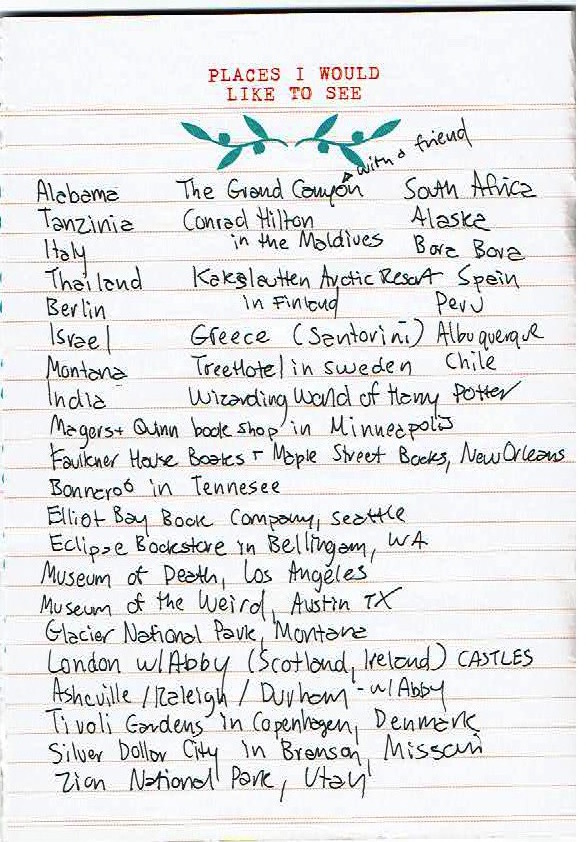 PLACES I WOULD
LIKE TO SEE
with a friend
Alabama The Grand Canyon South Africa
Tanzinia Conrad Hilton Alaska
Italy in the Maldives Bora Bora
Thailand Kakslautten Arctic Resort Spain
Berlin in Finland Peru
Israel Greece (Santorini) Albuquerque
Montana TreeHotel in Sweden Chile
India Wizarding World of Harry Potter
Magers + Quinn book shop in Minneapolis
Faulkner House Books + Maple Street Books, New Orleans
Bonneroo in Tennesee
Elliot Bay Book Company, Seattle
Eclipse Bookstore in Bellingam, WA
Museum of Death, Los Angeles
Museum of the Weird, Austin TX
Glacier National Park, Montana
London w/Abby (Scotland, Ireland) CASTLES
Asheville / Raleigh / Durham - w/Abby
Tivoli Gardens in Copenhagen, Denmark
Silver Dollar City in Branson, Missouri
Zion National Park, Utah